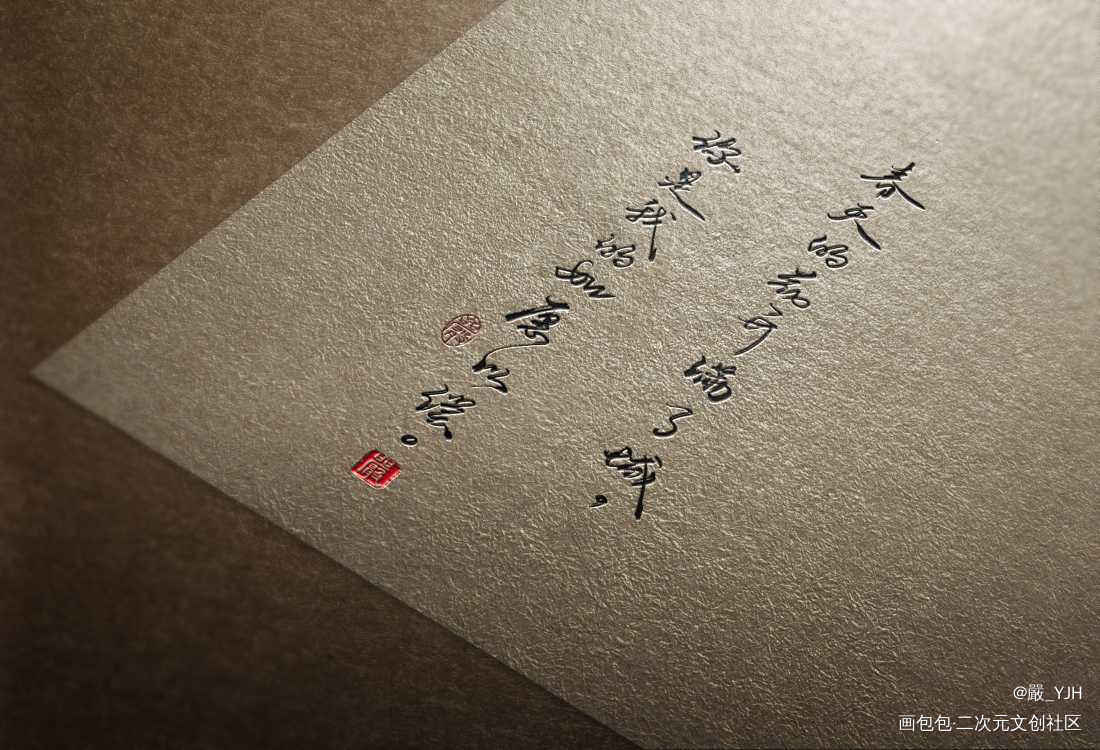 春天的满了城，
你是我的如愿以偿。
@嚴_YJH
画包包·二次元文创社区